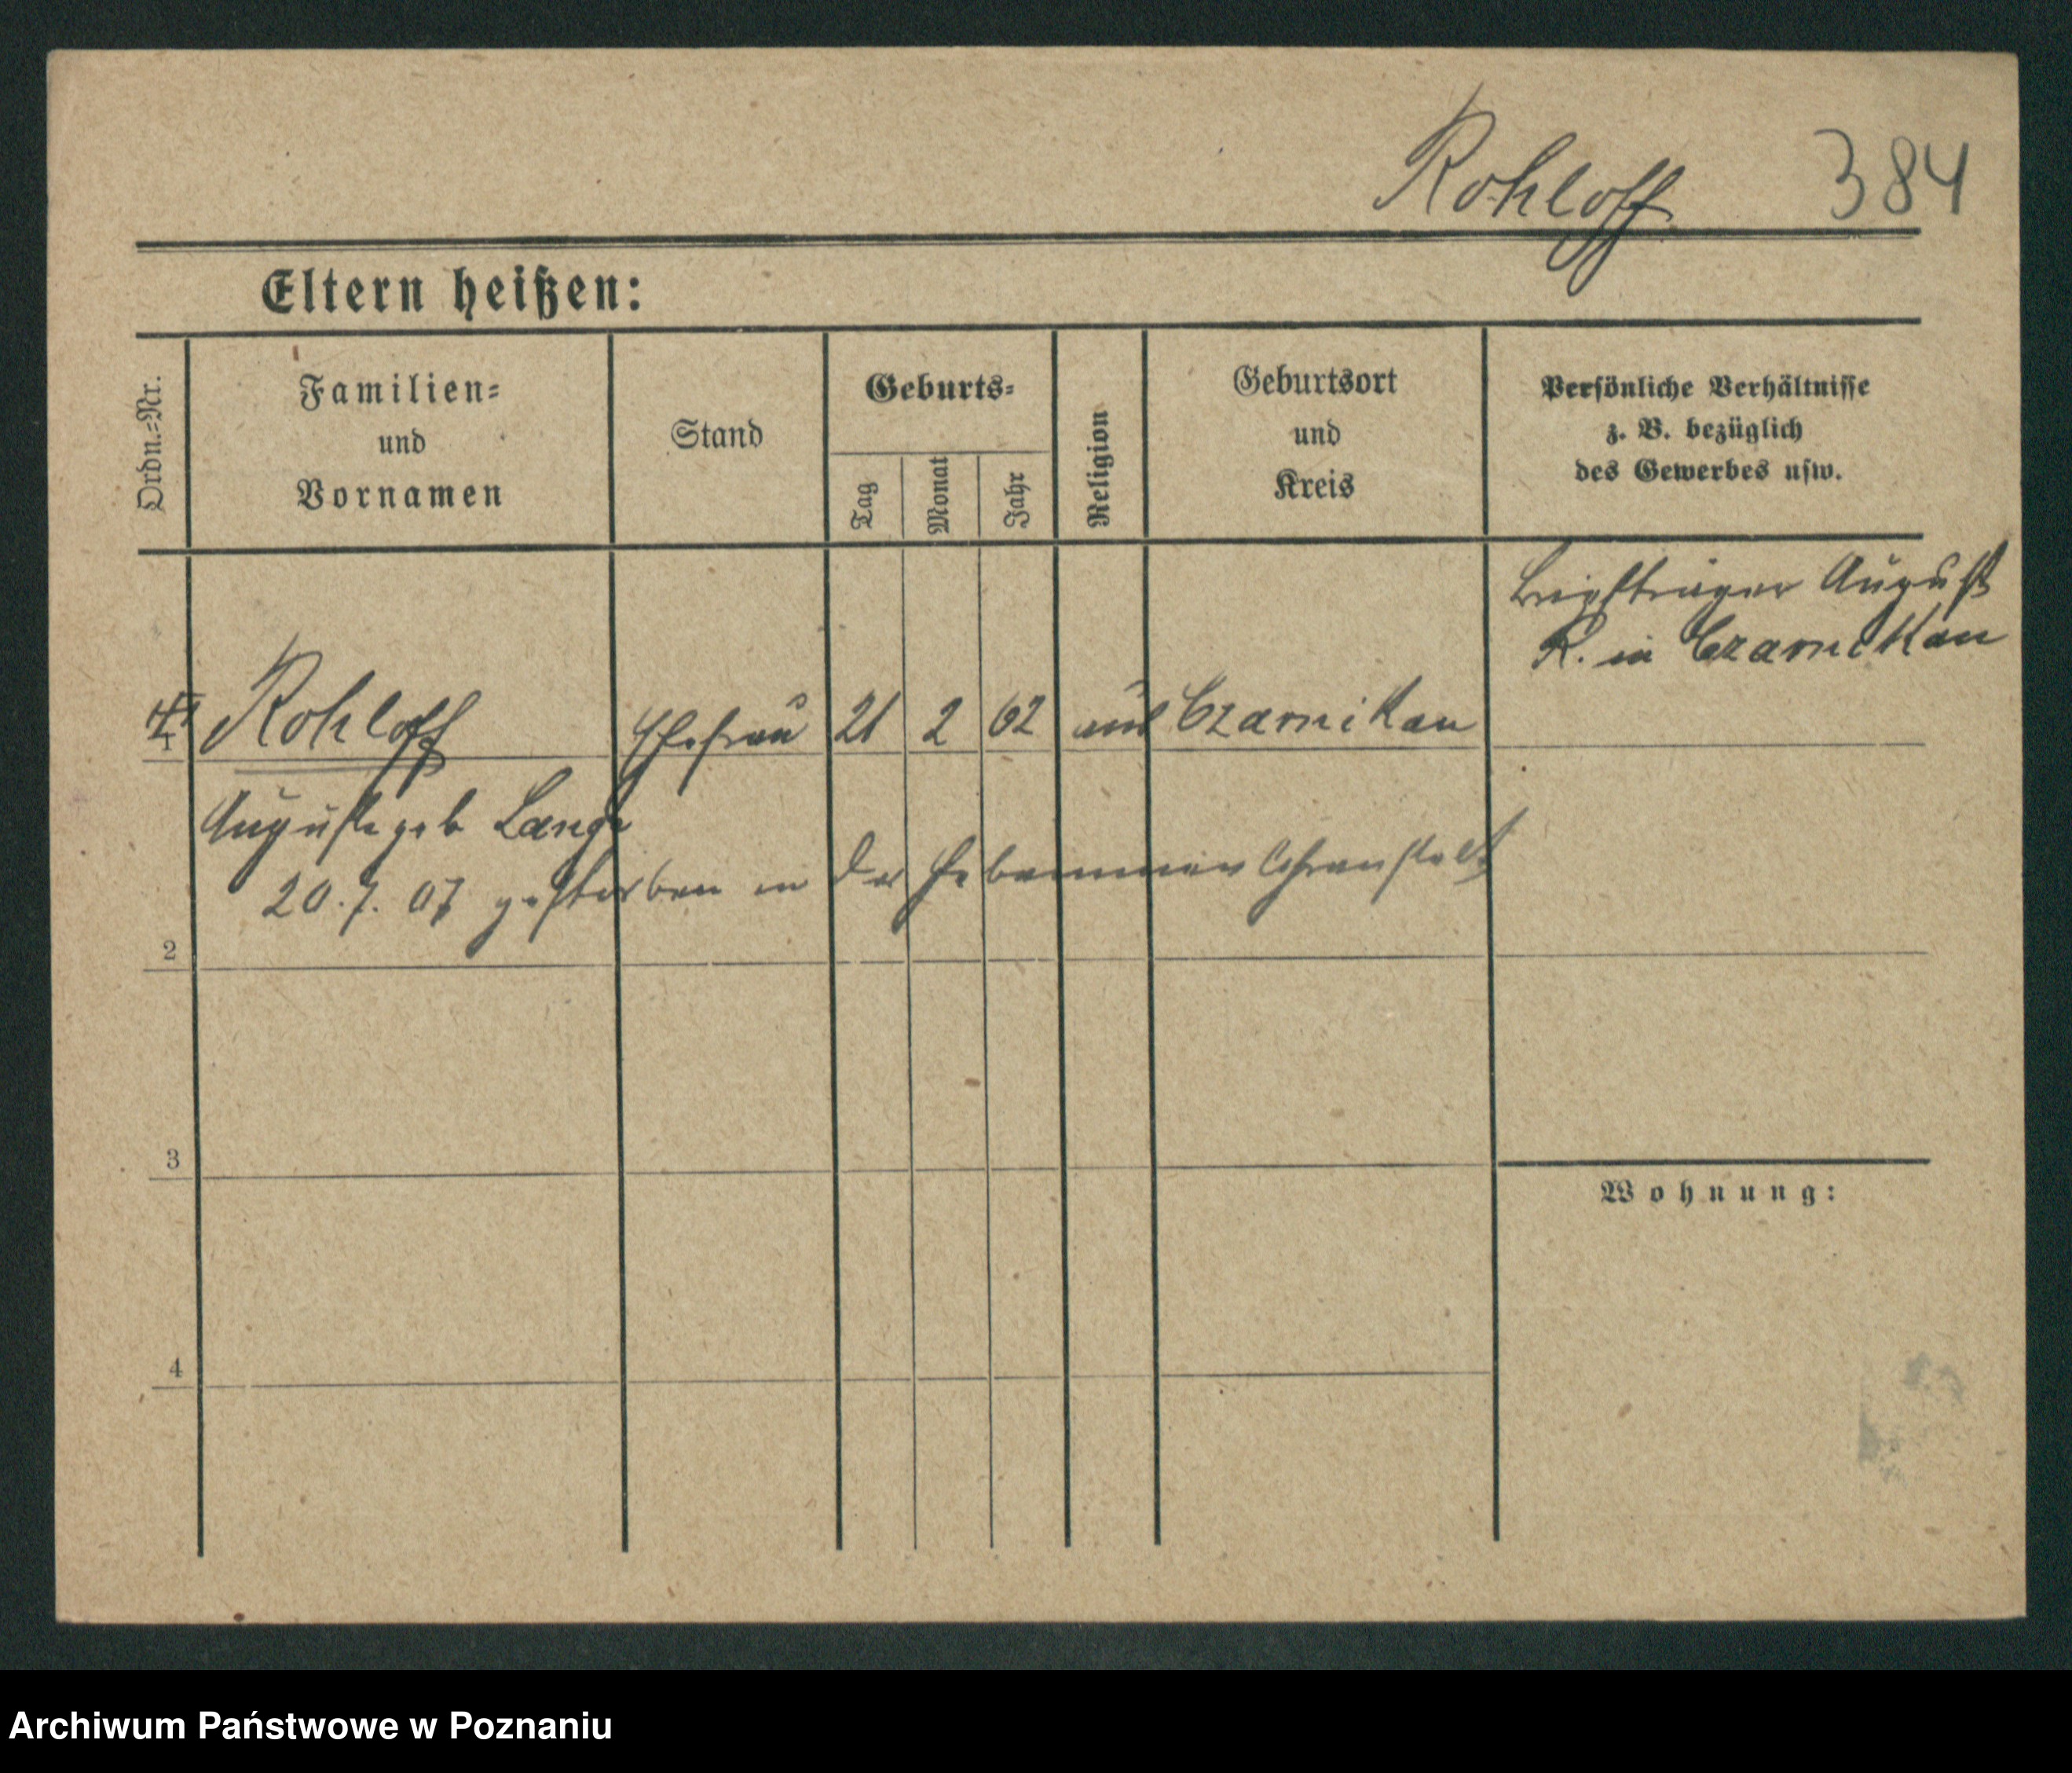 Rohloff 384
Eltern heißen:
Ordn.-Nr.
Familien-
und
Vornamen
Stand
Geburts-
Tag
Monat
Jahr
Religion
Geburtsort
und
Kreis
Persönliche Verhältnisse
z. B. bezüglich
des Gewerbes usw.
Briefträger August
R. in Czarnikau
1 Rohloff Ehefrau 21 2 62 Czarnikau
Auguste geb Lange
20.7.07 gestorben in der Hebammenlehranstalt
2
3
Wohnung:
4
Archiwum Państwowe w Poznaniu